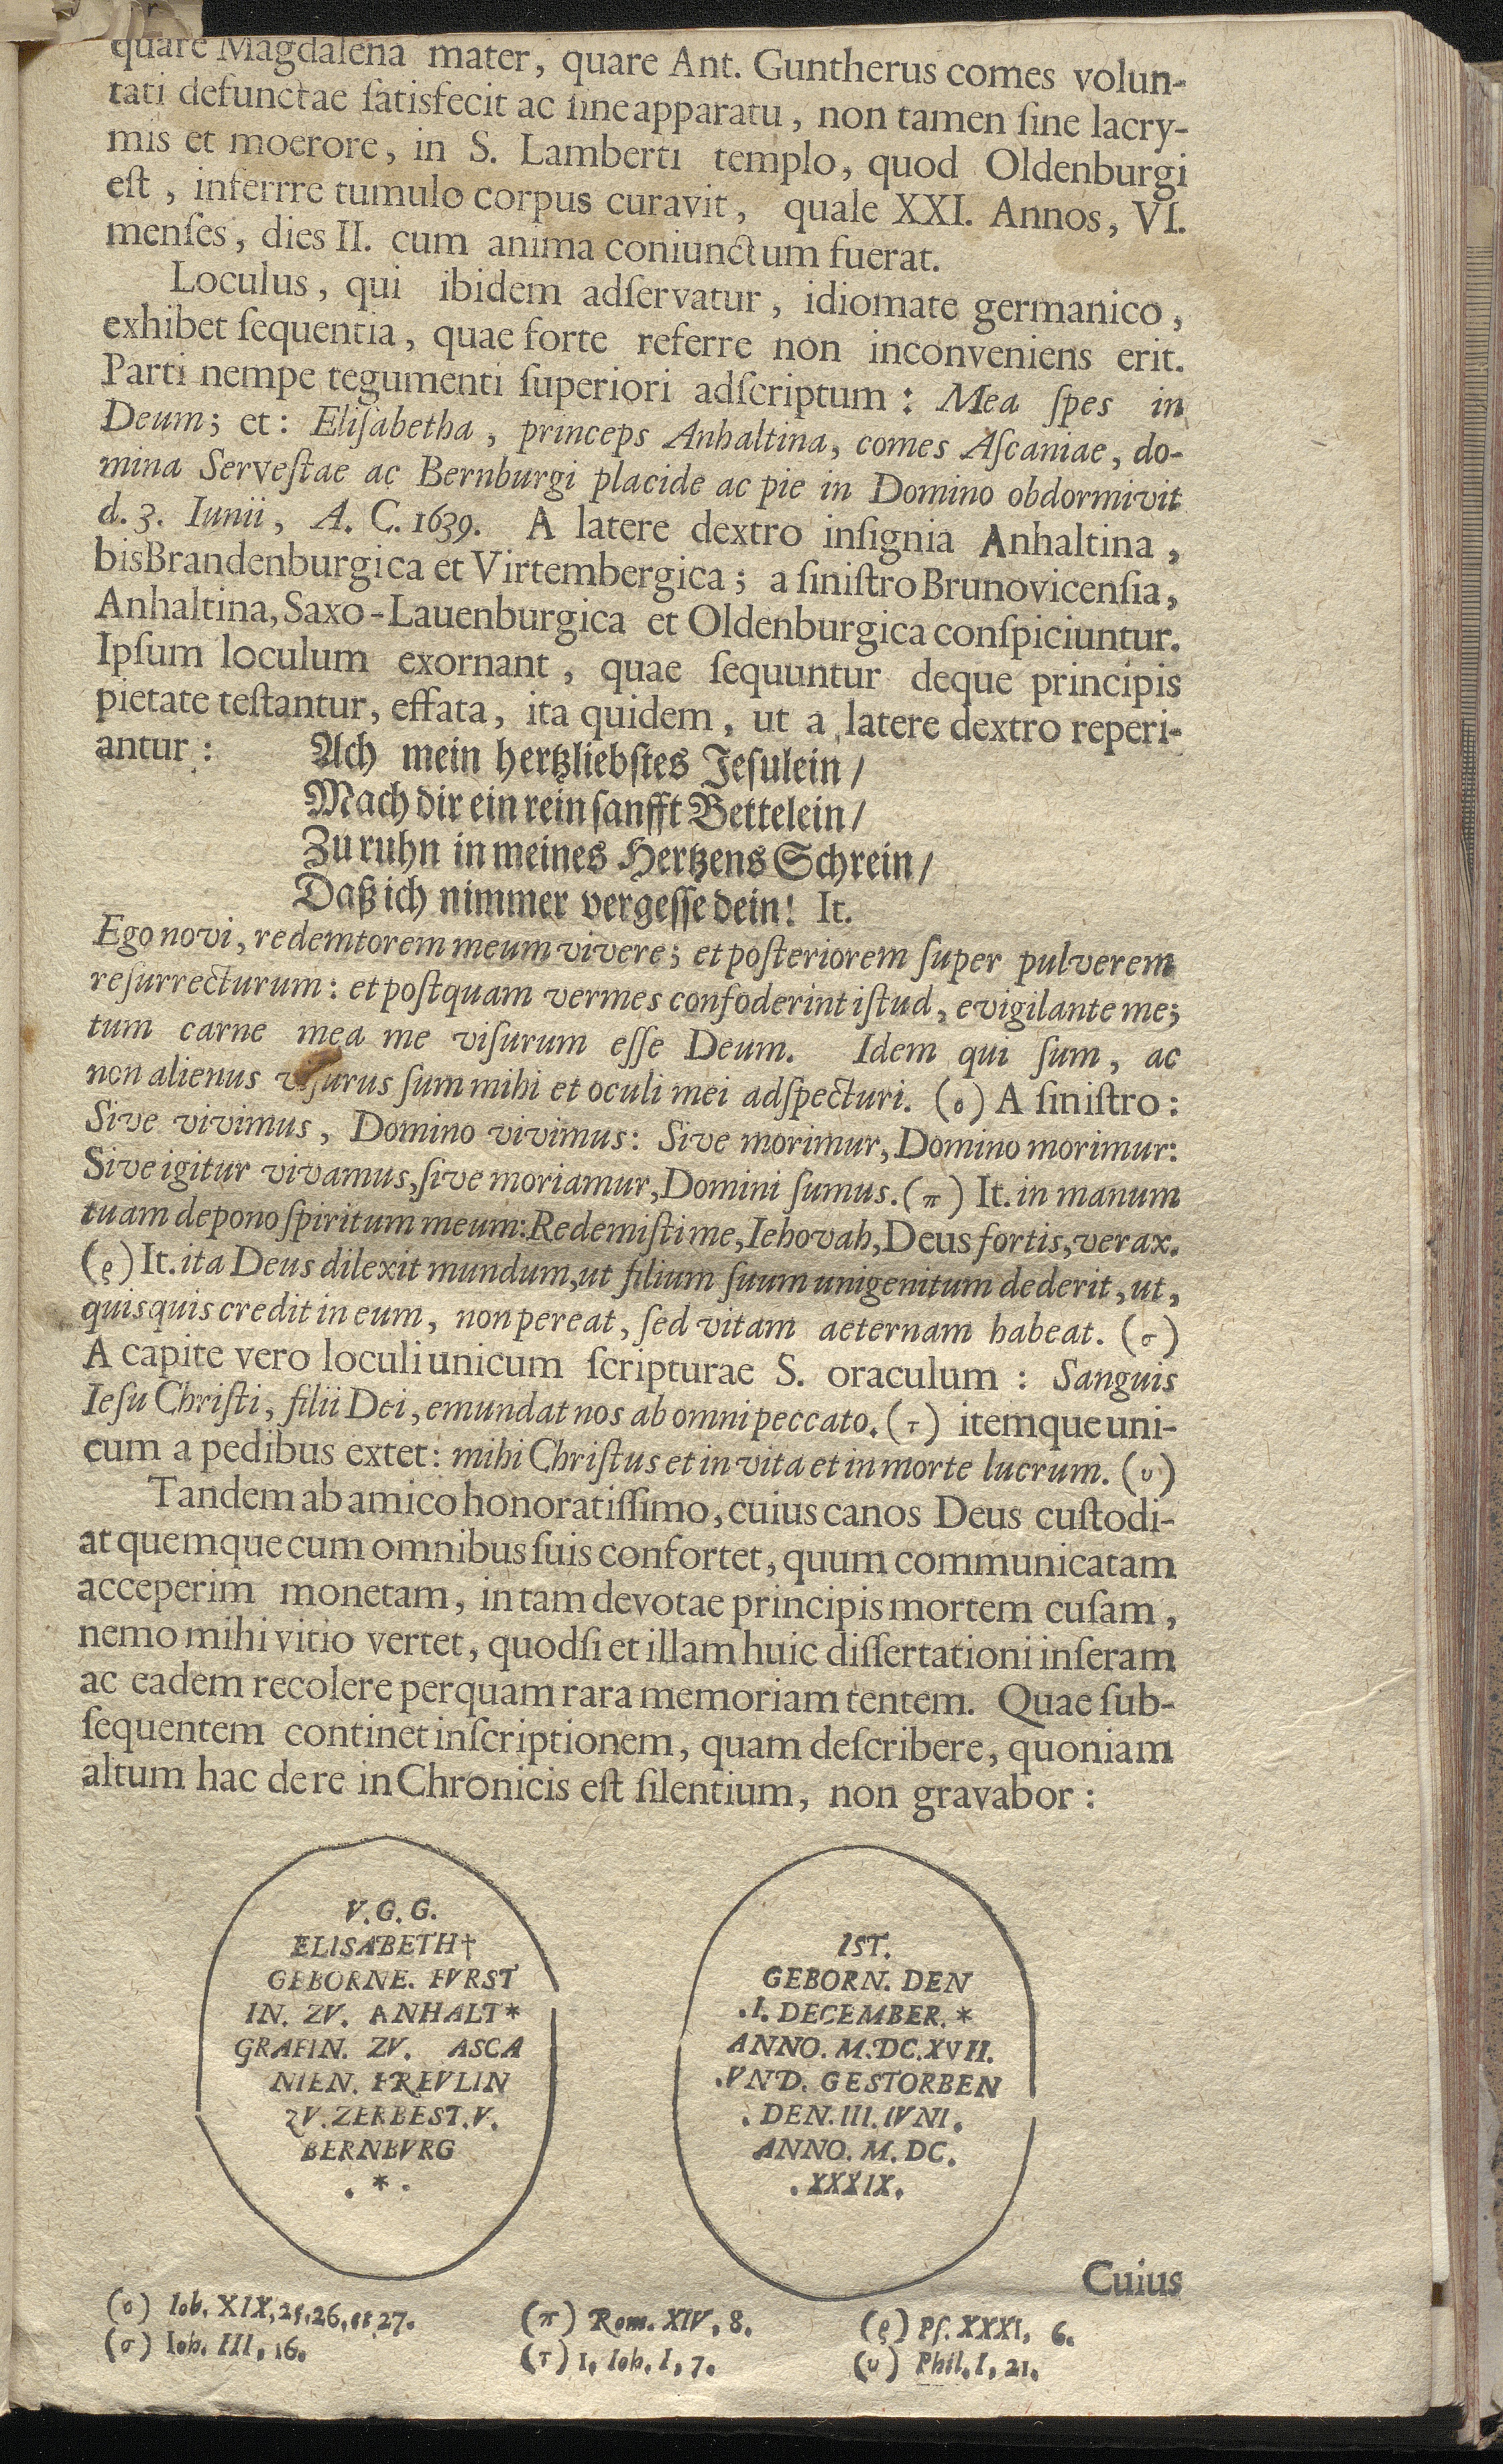 quare Magdalena mater, quare Ant. Guntherus comes volun-
tati defunctae ſatisfecit ac ſine apparatu, non tamen ſine lacry-
mis et moerore, in S. Lamberti templo, quod Oldenburgi
eſt, inferrre tumulo corpus curavit, quale XXI. Annos, VI.
menſes, dies II. cum anima coniunctum fuerat.
Loculus, qui ibidem adſervatur, idiomate germanico,
exhibet ſequentia, quae forte referre non inconveniens erit.
Parti nempe tegumenti ſuperiori adſcriptum: Mea ſpes in
Deum; et: Eliſabetha, princeps Anhaltina, comes Aſcaniae, do-
mina Serveſtae ac Bernburgi placide ac pie in Domino obdormivit
d. 3. Iunii, A. C. 1639. A latere dextro inſignia Anhaltina,
bis Brandenburgica et Virtembergica; a ſiniſtro Brunovicenſia,
Anhaltina, Saxo-Lauenburgica et Oldenburgica conſpiciuntur.
Ipſum loculum exornant, quae ſequuntur deque principis
pietate teſtantur, effata, ita quidem, ut a latere dextro reperi-
antur: Ach mein hertzliebſtes Jeſulein/
Mach dir ein rein ſanfft Bettelein/
Zu ruhn in meines Hertzens Schrein/
Daß ich nimmer vergeſſe dein! It.
Ego novi, redemtorem meum vivere; et poſteriorem ſuper pulverem
reſurrecturum: et poſtquam vermes confoderint iſtud, evigilante me;
tum carne mea me viſurum eſſe Deum. Idem qui ſum, ac
non alienus viſurus ſum mihi et oculi mei adſpecturi. (ο) A ſiniſtro:
Sive vivimus, Domino vivimus: Sive morimur, Domino morimur:
Sive igitur vivamus, ſive moriamur, Domini ſumus. (π) It. in manum
tuam depono ſpiritum meum: Redemiſti me, Iehovah, Deus fortis, verax.
(ϱ) It. ita Deus dilexit mundum, ut filium ſuum unigenitum dederit, ut,
quisquis credit in eum, non pereat, ſed vitam aeternam habeat. (σ)
A capite vero loculi unicum ſcripturae S. oraculum: Sanguis
Ieſu Chriſti, filii Dei, emundat nos ab omni peccato. (τ) itemque uni-
cum a pedibus extet: mihi Chriſtus et in vita et in morte lucrum. (υ)
Tandem ab amico honoratiſſimo, cuius canos Deus cuſtodi-
at quemque cum omnibus ſuis confortet, quum communicatam
acceperim monetam, in tam devotae principis mortem cuſam,
nemo mihi vitio vertet, quodſi et illam huic diſſertationi inſeram
ac eadem recolere perquam rara memoriam tentem. Quae ſub-
ſequentem continet inſcriptionem, quam deſcribere, quoniam
altum hac de re in Chronicis eſt ſilentium, non gravabor:
V. G. G.
ELISABETH†
GEBORNE. FVRST
IN. ZV. ANHALT*
GRAFIN. ZV. ASCA
NIEN. FREVLIN
ZV. ZERBEST. V.
BERNBVRG
. * .
IST.
GEBORN. DEN
.I. DECEMBER. *
ANNO. M. DC. XVII.
.VND. GESTORBEN
. DEN. III. IVNI.
ANNO. M. DC.
. XXXIX.
Cuius
(ο) Iob. XIX, 25. 26. et 27. (π) Rom. XIV, 8. (ϱ) Pſ. XXXI, 6.
(σ) Ioh. III, 16. (τ) 1. Ioh. I, 7. (υ) Phil. I, 21.